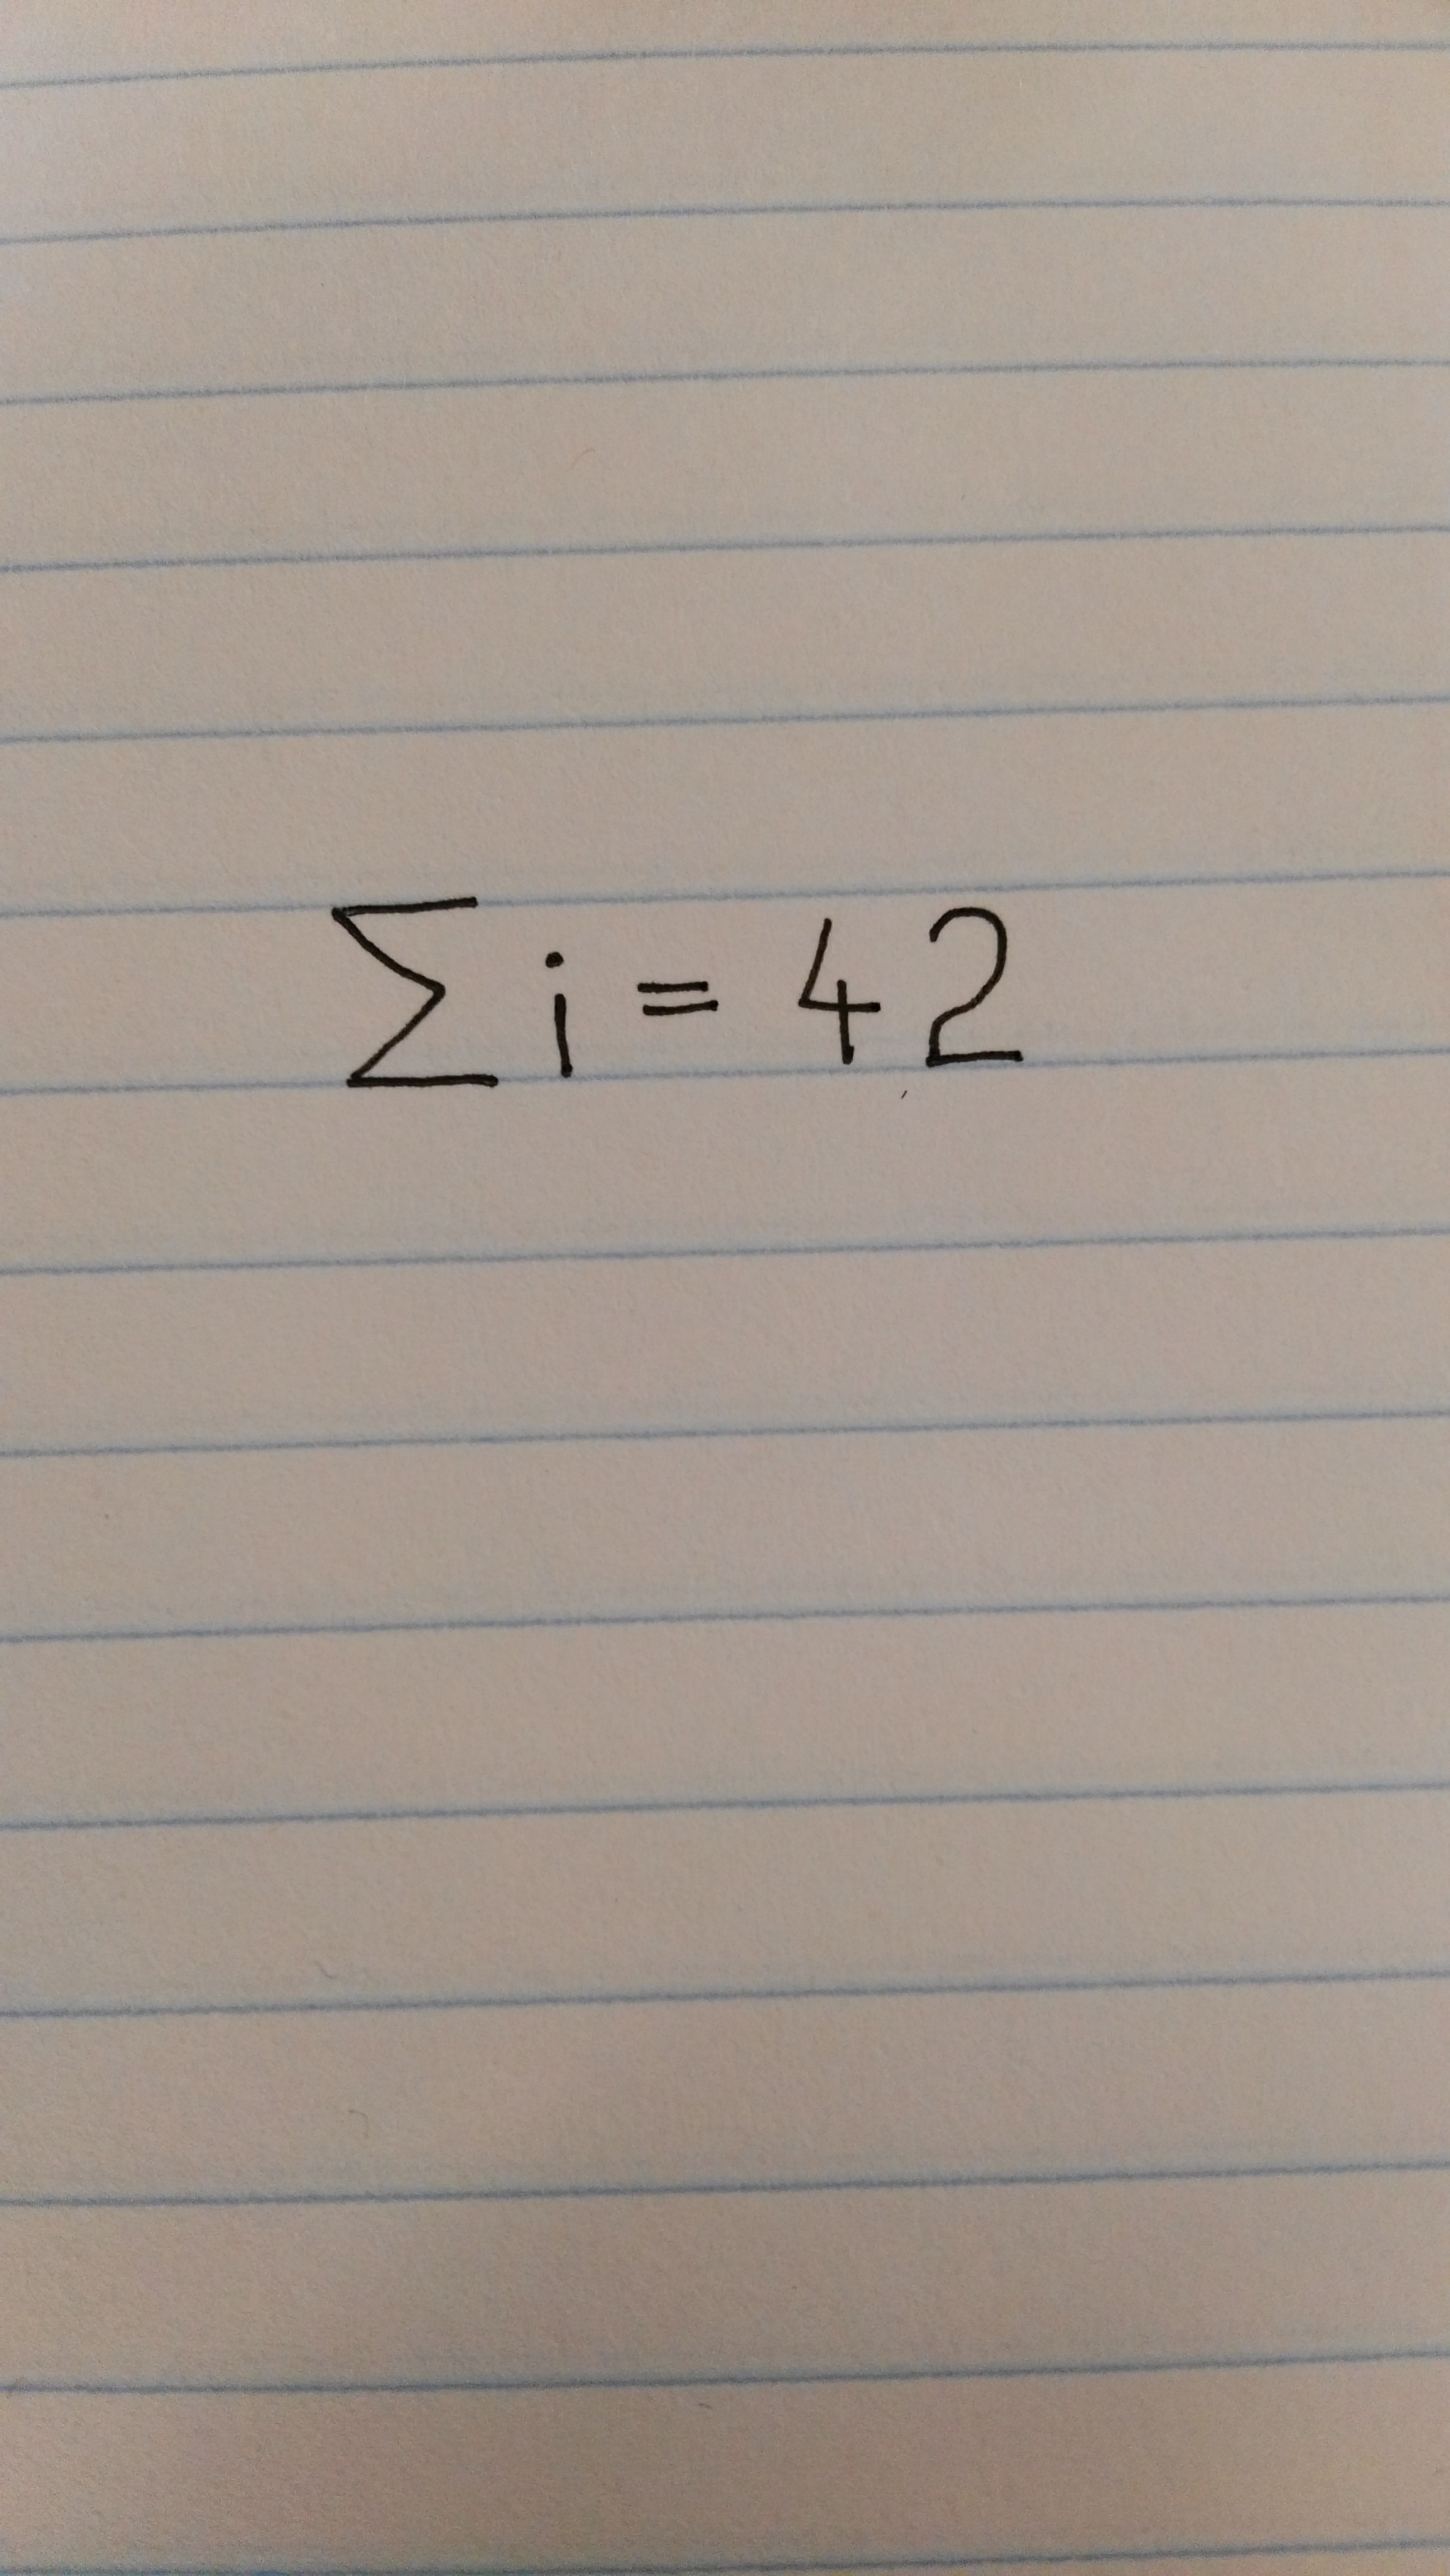 ∑ i = 42